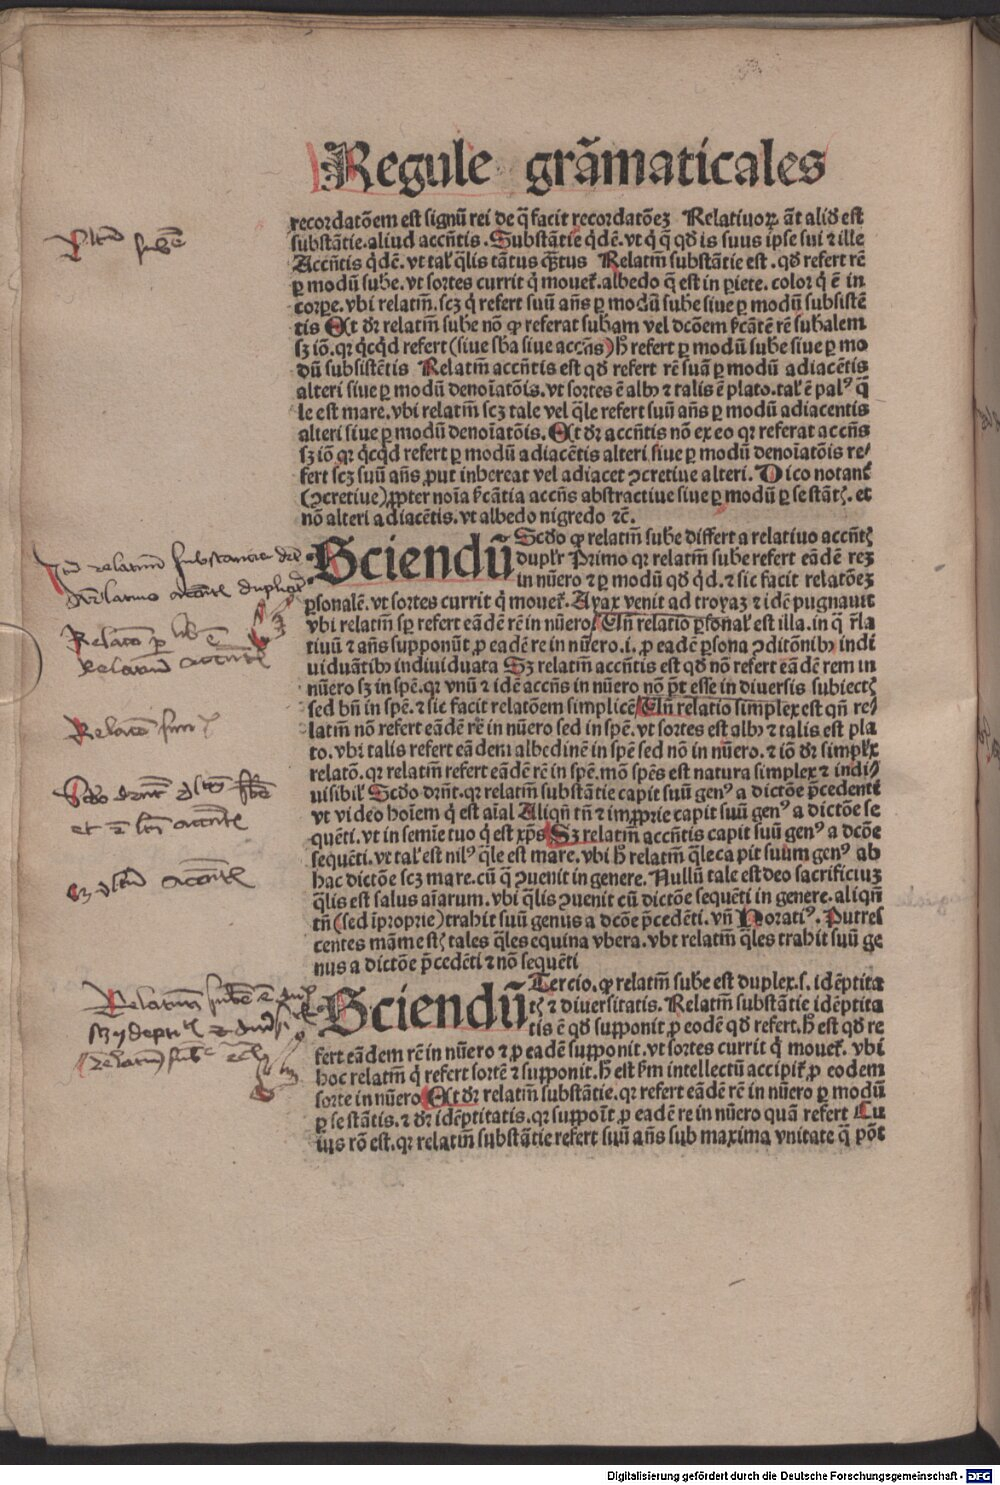 Regule grãmaticales
recordatõem est signũ rei de q̃ facit recordatõeȝ Relatiuoꝝ ãt aliđ est
substãtie.aliud accñtis.Substãtie q̇dẽ.vt q̇ q̃ qđ is suus ip̃e sui ⁊ ille
Accñtis q̇dẽ.vt tal' q̃lis tãtus quãtus Relatiũ substãtie est.qđ refert rẽ
ꝑ modũ sube.vt sortes currit q̇ mouet͛.albedo q̃ est in ꝑiete.color q̇ ẽ in
corꝑe.vbi relatiũ.scȝ q̇ refert suũ añs ꝑ modũ sube siue ꝑ modũ subsistẽ
tis Et dr̃ relatiũ sube nõ ꝙ referat subam vel dcõem ẜcãtẽ rẽ subalem
sȝ iõ.qꝛ q̇cq̇d refert (siue sba siue accñs) h̃ refert ꝑ modũ sube siue ꝑ mo
dũ subsistẽtis Relatiũ accñtis est qđ refert rẽ suã ꝑ modũ adiacẽtis
alteri siue ꝑ modũ denoĩatõis.vt sortes ẽ alb⁹ ⁊ talis ẽ plato.tal' ẽ pal⁹ q̃
le est mare.vbi relatiũ scȝ tale vel q̃le refert suũ añs ꝑ modũ adiacentis
alteri siue ꝑ modũ denoĩatõis.Et dr̃ accñtis nõ ex eo qꝛ referat accñs
sȝ iõ qꝛ q̇cq̇d refert ꝑ modũ adiacẽtis alteri siue ꝑ modũ denoĩatõis re/
fert scȝ suũ añs ꝓut inhereat vel adiacet ↄcretiue alteri. Dico notant͛
(ↄcretiue) ꝓpter noĩa ẜcãtia accñs abstractiue siue ꝑ modũ ꝑ se stãtꝭ.et
nõ alteri adiacẽtis.vt albedo nigredo ⁊c̃.
Sciendũ Scđo ꝙ relatiũ sube differt a relatiuo accñtꝭ
duplr̃ Primo qꝛ relatiũ sube refert eãdẽ reȝ
in nũero ⁊ ꝑ modũ qđ q̇d.⁊ sic facit relatõeȝ
ꝑsonalẽ.vt sortes currit q̇ mouet͛.Ayax venit ad troyaȝ ⁊ idẽ pugnauit
vbi relatiũ sꝑ refert eãdẽ rẽ in nũero Uñ relatio ꝑsonal' est illa.in q̃ r̃la
tiuũ ⁊ añs supponũt ꝓ eadẽ re in nũero.i.ꝓ eadẽ ꝑsona ↄditõnib⁹ indi
uiduãtib⁹ indiuiduata Sȝ relatiũ accñtis est qđ nõ refert eãdẽ rem in
nũero sȝ in spẽ.qꝛ vnũ ⁊ idẽ accñs in nũero nõ põt esse in diuersis subiectꝭ
sed bñ in spẽ.⁊ sic facit relatõem simplicẽ Uñ relatio simplex est qñ re/
latiũ nõ refert eãdẽ rẽ in nũero sed in spẽ.vt sortes est alb⁹ ⁊ talis est pla
to.vbi talis refert eãdem albedinẽ in spẽ sed nõ in nũero.⁊ iõ dr̃ simplex
relatõ.qꝛ relatiũ refert eãdẽ rẽ in spẽ.mõ spẽs est natura simplex ⁊ indi/
uisibil' Scđo dr̃nt.qꝛ relatiũ substãtie capit suũ gen⁹ a dictõe p̃cedenti
vt video hoĩem q̇ est aĩal Aliqñ tñ ⁊ improprie capit suũ gen⁹ a dictõe se
quẽti.vt in semĩe tuo q̇ est xp̃s Sȝ relatiũ accñtis capit suũ gen⁹ a dcõe
sequẽti.vt tal' est nil⁹ q̃le est mare.vbi h̃ relatiũ q̃le capit suum gen⁹ ab
hac dictõe scȝ mare.cũ q̃ ↄuenit in genere.Nullũ tale est deo sacrificiuȝ
q̃lis est salus aĩarum.vbi q̃lis ↄuenit cũ dictõe sequẽti in genere.aliqñ
tñ (sed ĩproprie) trahit suũ genus a dcõe p̃cedẽti.vñ Horati⁹.Putres
centes mãme stꝭ tales q̃les equina vbera.vbi relatiũ q̃les trahit suũ ge
nus a dictõe p̃cedẽti ⁊ nõ sequẽti
Sciendũ Tercio.ꝙ relatiũ sube est duplex.s.idẽptita
tꝭ ⁊ diuersitatis.Relatiũ substãtie idẽptita
tis ẽ qđ supponit ꝓ eodẽ qđ refert.h̃ est qđ re
fert eãdem rẽ in nũero ⁊ ꝓ eadẽ supponit.vt sortes currit q̇ mouet͛.vbi
hoc relatiũ q̇ refert sortẽ ⁊ supponit.h̃ est ẜm intellectũ accipit͛ ꝓ eodem
sorte in nũero Et dr̃ relatiũ substãtie.qꝛ refert eãdẽ rẽ in nũero ꝑ modũ
ꝑ se stãtis.⁊ dr̃ idẽptitatis.qꝛ suppõt ꝓ eadẽ re in nũero quã refert Cu
ius rõ est.qꝛ relatiũ substãtie refert suũ añs sub maxima vnitate q̃ põt
Digitalisierung gefördert durch die Deutsche Forschungsgemeinschaft - DFG